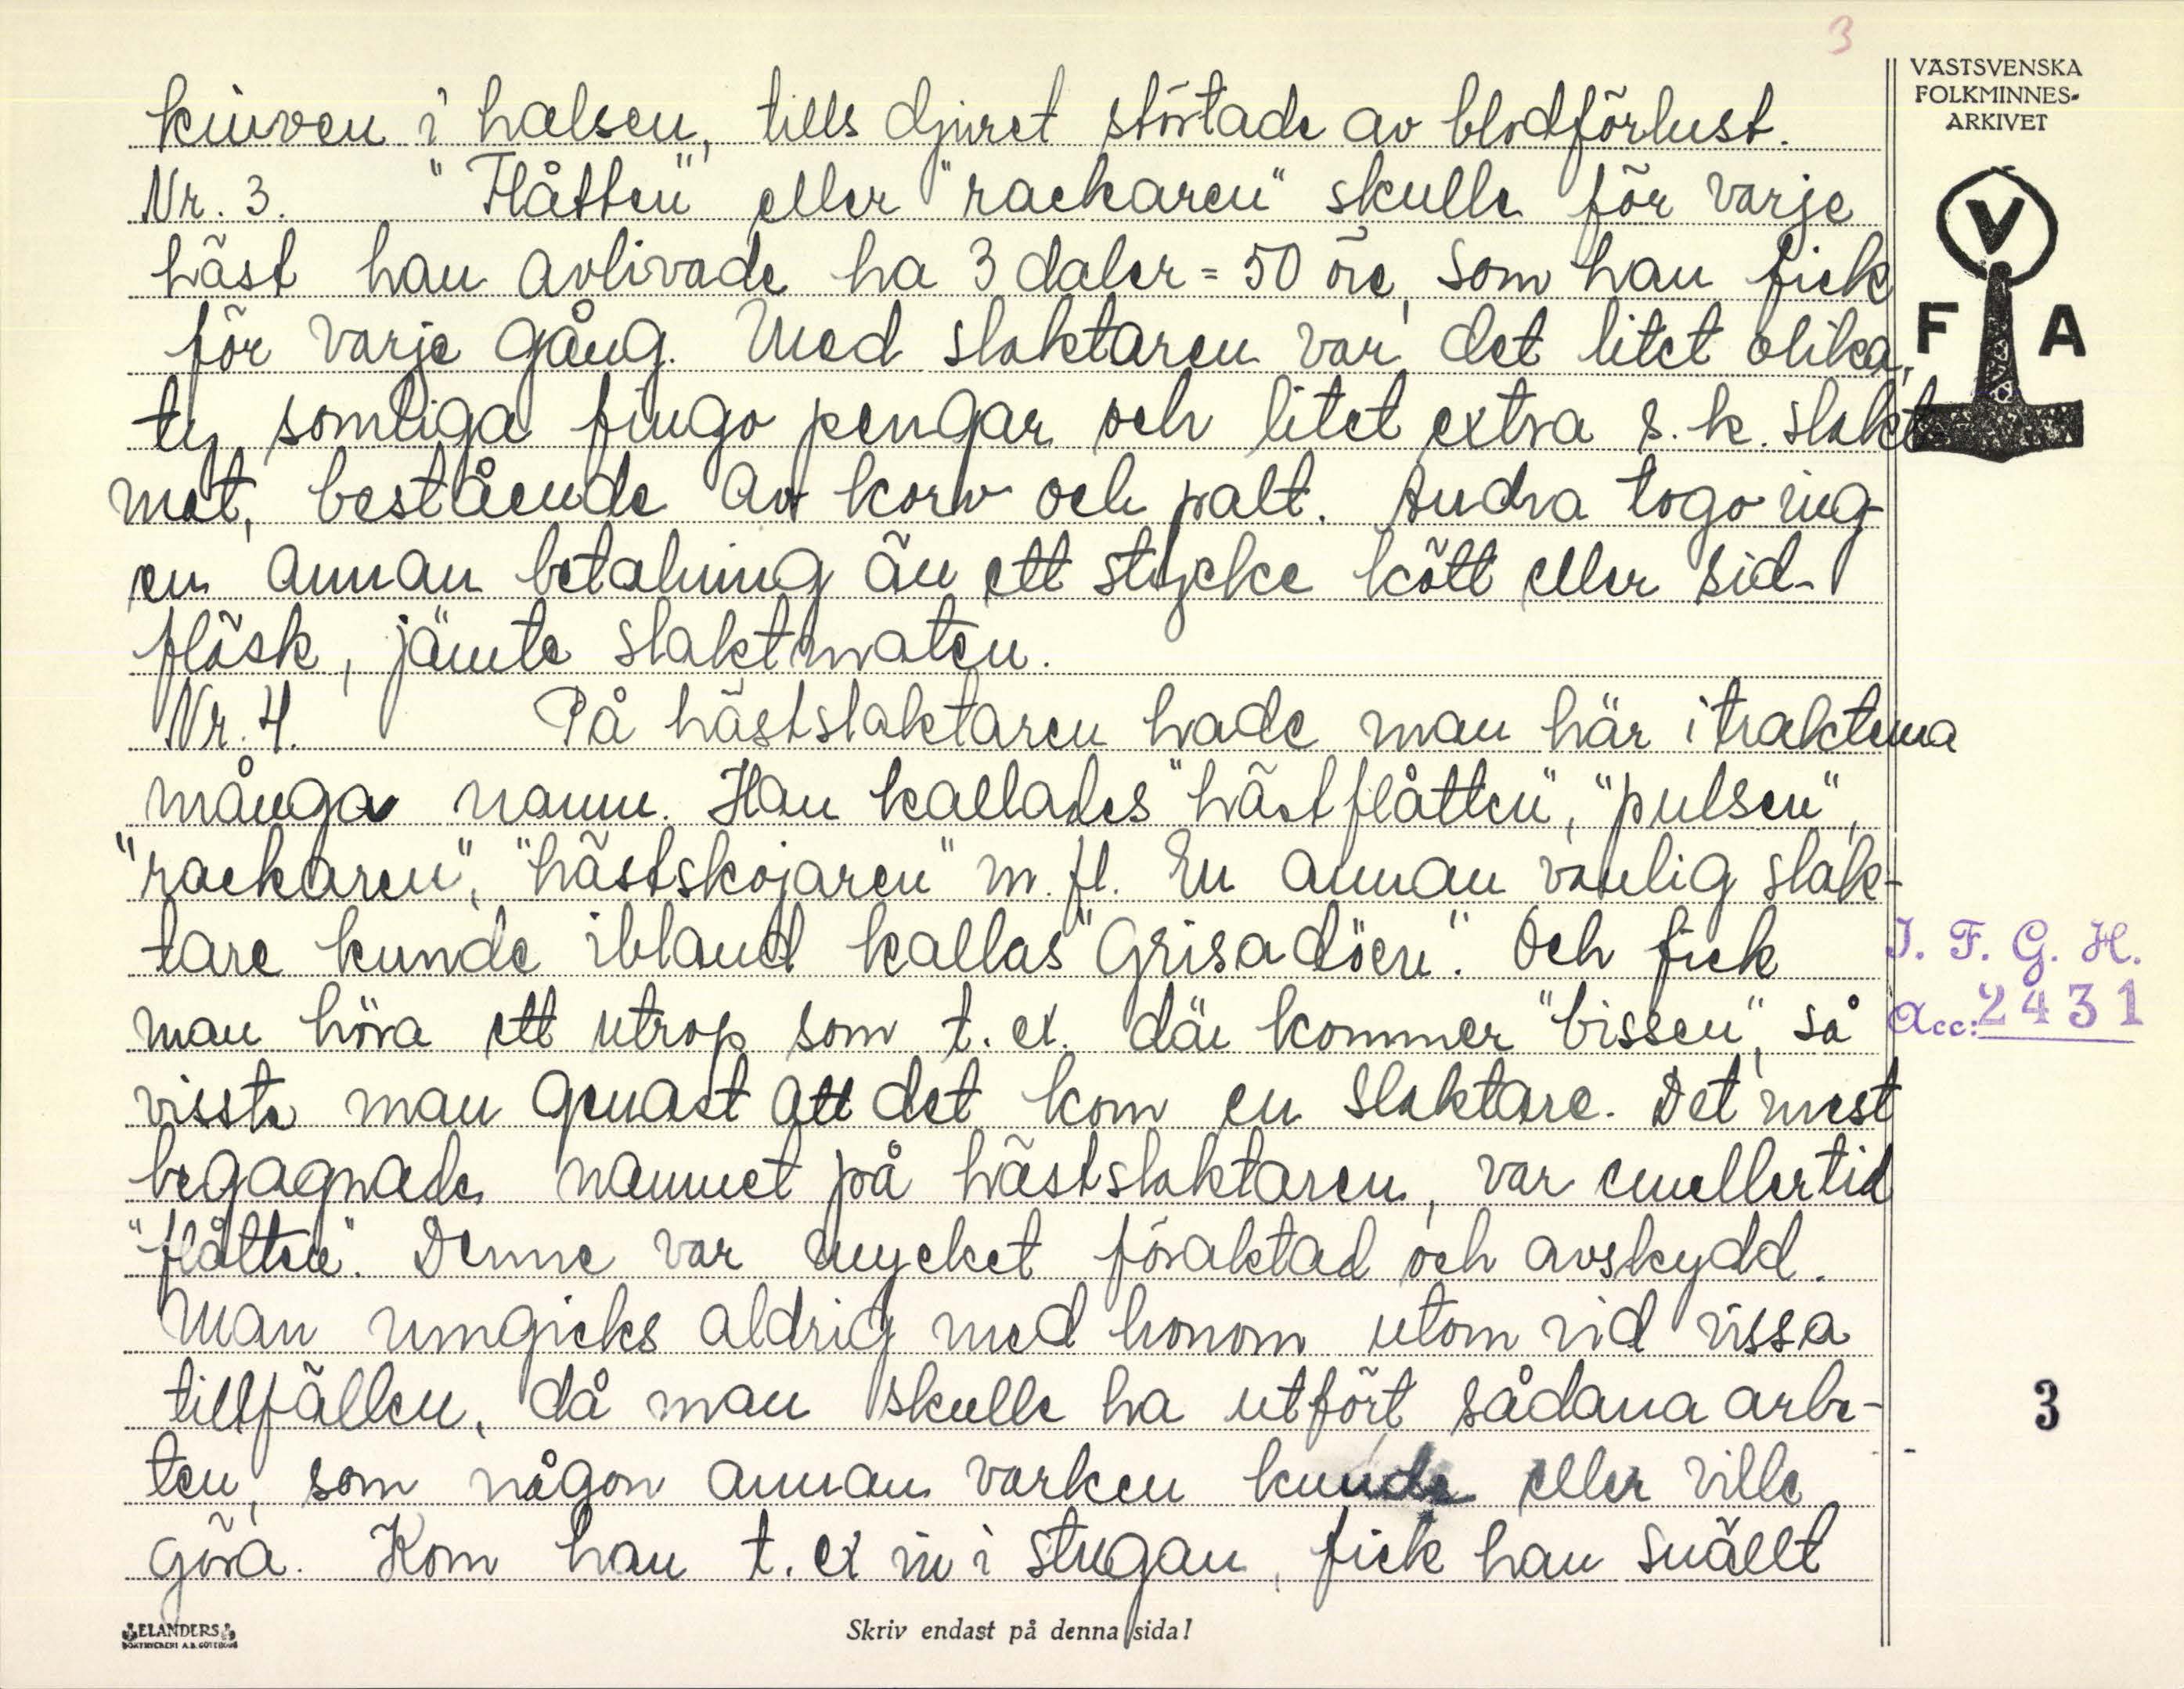 3
VÄSTSVENSKA
FOLKMINNES-
ARKIVET
V
F A
kniven i halsen, tills djuret störtade av blodförlust.
Nr. 3. "Flåtten" eller "rackaren" skulle för varje
häst han avlivade ha 3 daler = 50 öre, som han fick
för varje gång. Med slaktaren var det litet olika,
ty somliga fingo pengar och litet extra s.k. slakt-
mat, bestående av korv och palt. Andra togo ing-
en annan betalning än ett stycke kött eller sid-
fläsk, jämte slaktmaten.
Nr. 4. På hästslaktaren hade man här i trakterna
många namn. Han kallades "hästflåtten", "pulsen",
"rackaren", "hästskojaren" m. fl. En annan vanlig slak-
tare kunde ibland kallas "Grisadöen". Och fick
man höra ett utrop som t. ex. där kommer "bissen", så
visste man genast att det kom en slaktare. Det mest
begagnade namnet på hästslaktaren, var emellertid
"flåtten". Denne var mycket föraktad och avskydd.
Man umgicks aldrig med honom utom vid vissa
tillfällen, då man skulle ha utfört sådana arbe-
ten, som någon annan varken kunde eller ville
göra. Kom han t. ex in i stugan, fick han snällt
I. F. G. H.
Acc: 2431
3
ELANDERS
BOKTRYCKERI A.B. GÖTEBORG
Skriv endast på denna sida!